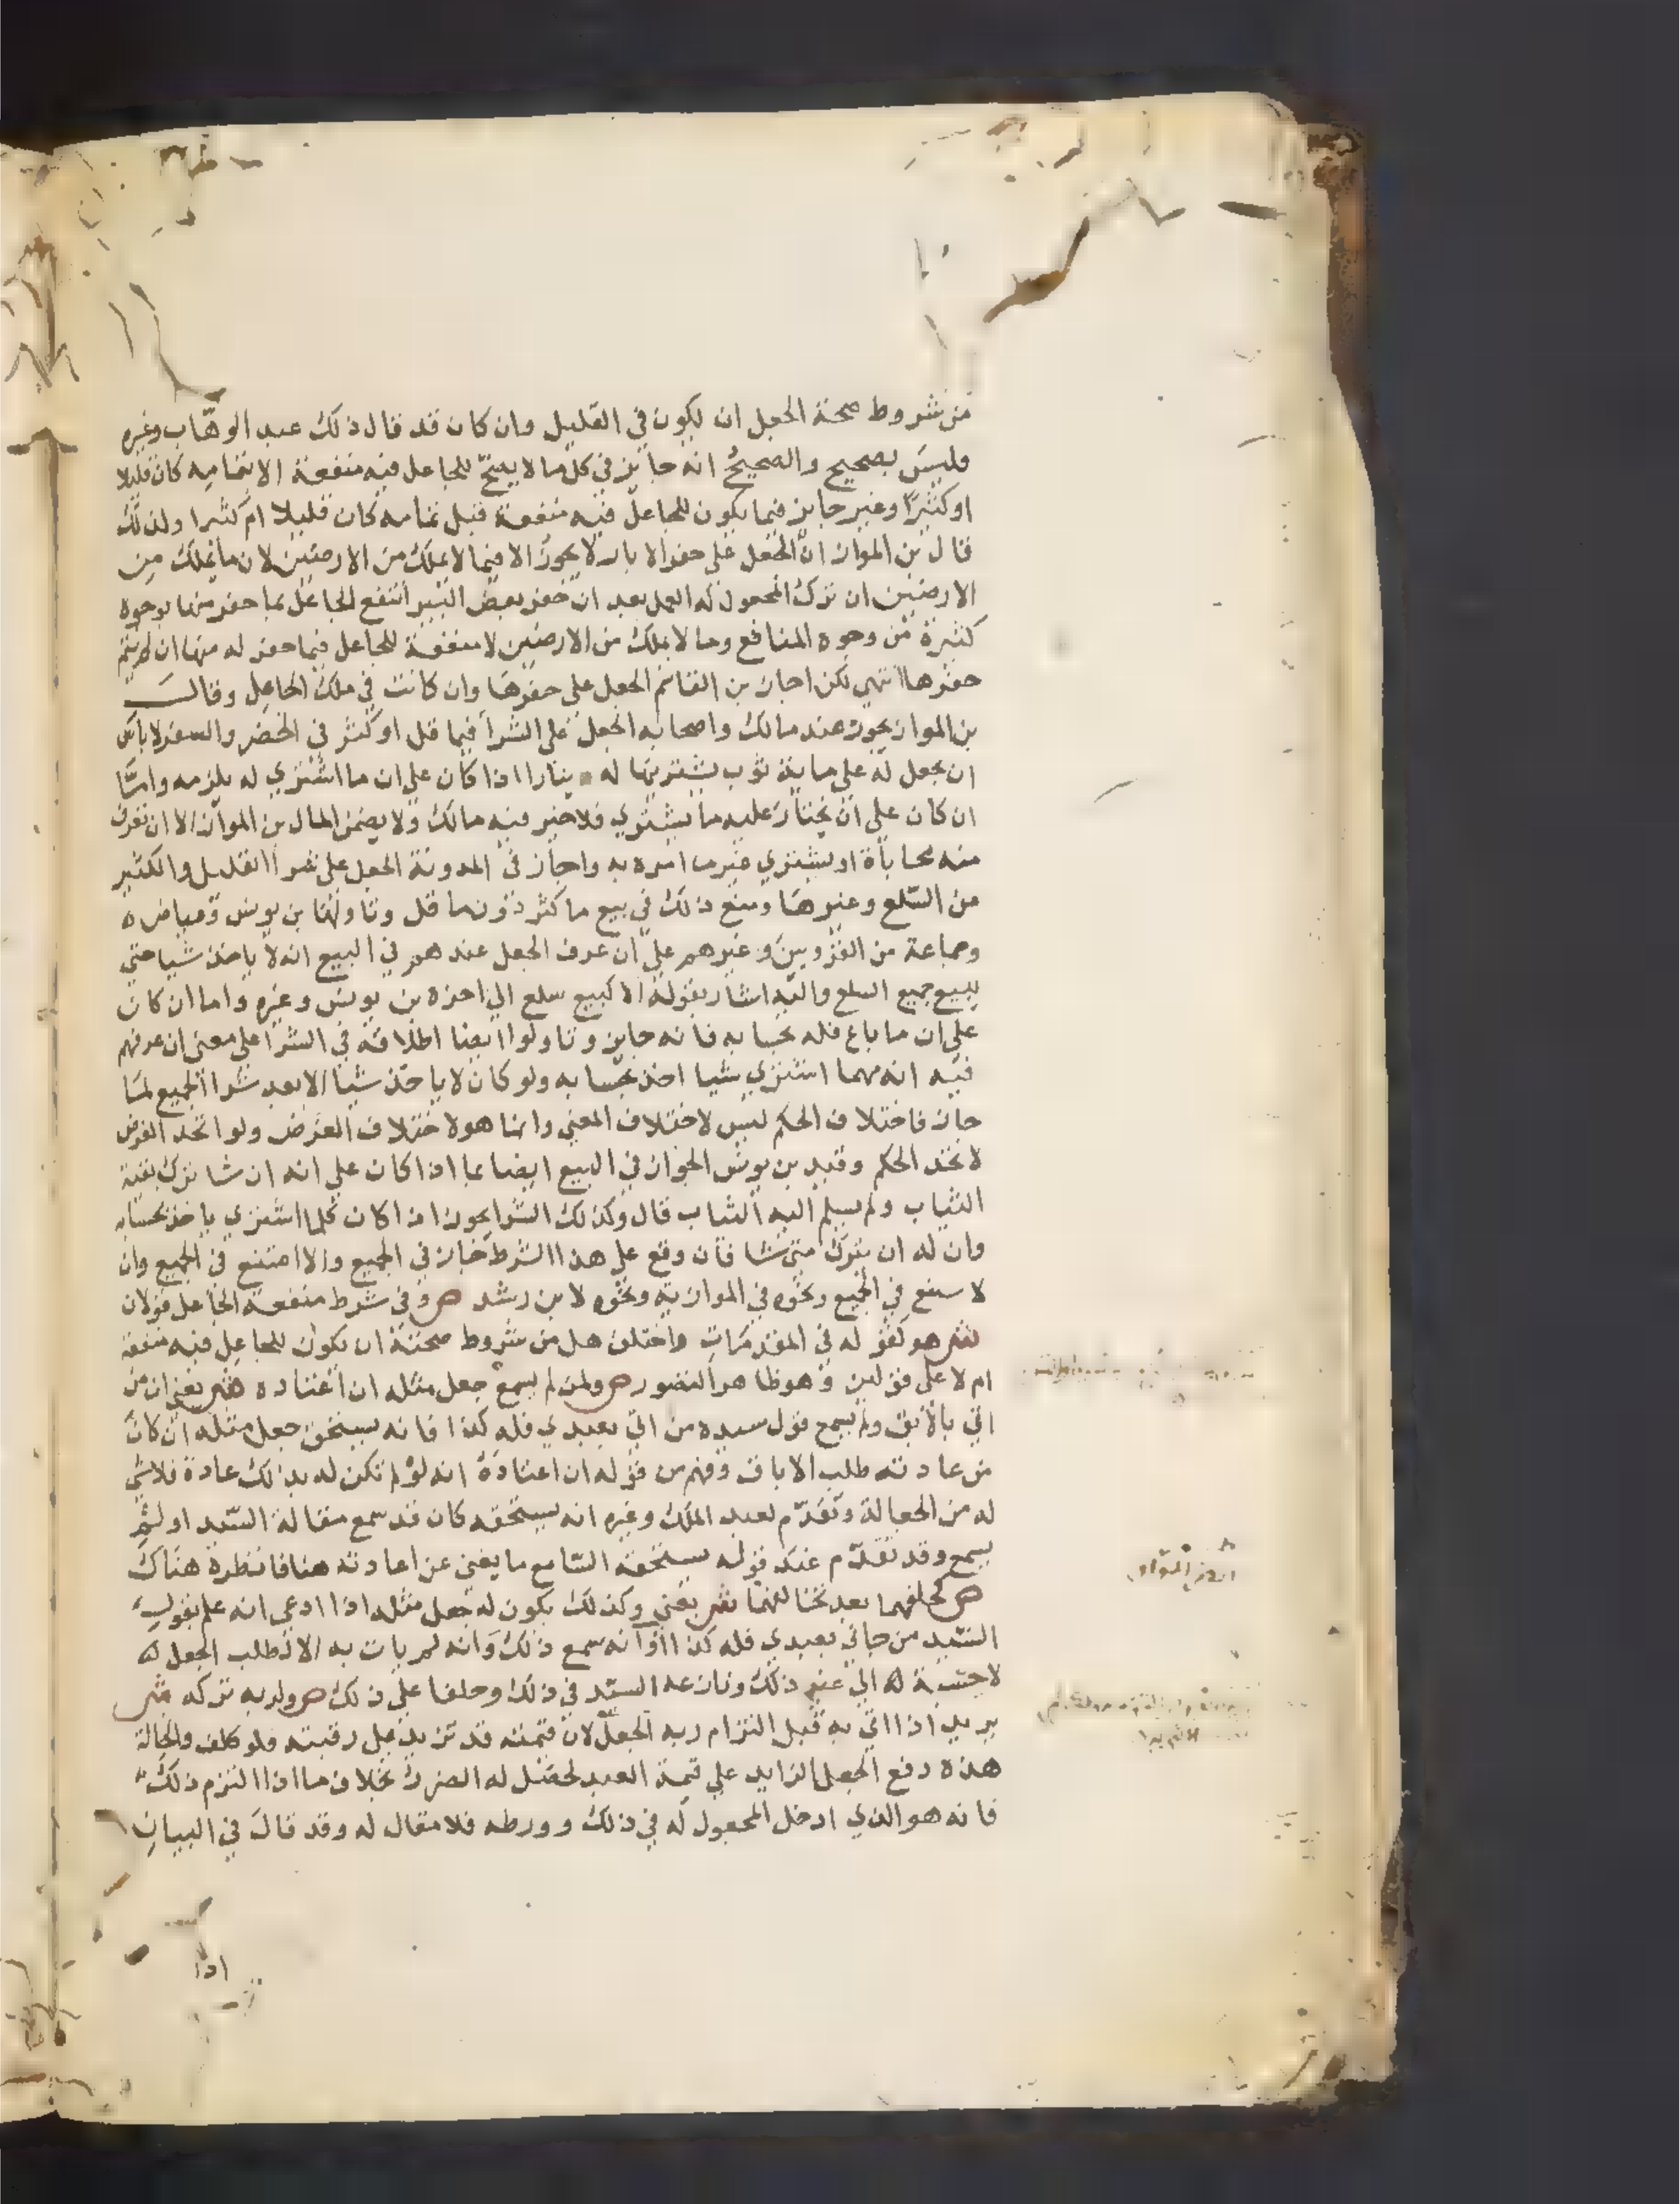 من شروط صحة الجعل ان يكون في القليل وان كان قد قال ذلك عبد الوهّاب وغيره
وليس بصحيح والصحيحُ انه جايز في كل ما لا يصحّ للجاعل فيه منفعة الا بتمامه كان قليلا
او كثيرًا وغير جايز فيما يكون للجاعل فيه منفعة قبل تمامه كان قليلا ام كثيرا ولذلك
قال بن المواز انّ الجعل على حفر الابار لا يجوز الا فيما لا يملك من الارضين لان ما يملك من
الارضين ان ترك المجعول له العمل بعد ان حفر بعض البير انتفع الجاعل بما حفر منها بوجوه
كثيرة من وجوه المنافع وما لا يملك من الارضين لا منفعة للجاعل فيما حفر له منها ان لم يتم
حفرها انتهي لكن اجاز بن القاسم الجعل على حفرها وان كانت في ملك الجاعل وقال
بن المواز يجوز عند مالك واصحابه الجعل على الشرا فيما قل او كثر في الحضر والسفر لا باس
ان يجعل له على ماية ثوب يشتريها له دينارا اذا كان على ان ما اشتري له يلزمه وامّا
ان كان على ان يختار عليه ما يشتري فلا خير فيه مالك ولا يضمن المال بن المواز الا ان تعرف
منه محاباة او يشتري غير ما امره به واجاز في المدونة الجعل على شرا القليل والكثير
من السّلع وغيرها ومنع ذلك في بيع ما كثر دون ما قل وتاولها بن يونس وعياض
وجماعة من القرويين وغيرهم على ان عرف الجعل عندهم في البيع انه لا ياخذ شيا حتي
يبيع جميع السلع واليه اشار بقوله الا كبيع سلع الى اخره بن يونس وغيره واما ان كان
علي ان ما باع فله بحسابه فانه جايز وتاولوا ايضا اطلاقه في الشرا على معني ان عرفهم
فيه انه مهما اشتري شيا اخذ بحسابه ولو كان لا ياخذ شيا الا بعد شرا الجميع لما
جاز فاختلاف الحكم ليس لاختلاف المعني وانما هو لاختلاف الغرض ولو اتحد الغرض
لاتحد الحكم وقيد بن يونس الجواز في البيع ايضا بما اذا كان على انه ان شا ترك بقية
الثياب ولم يسلم اليه الثياب قال وكذلك الشرا يجوز اذا كان كلما اشتري ياخذ بحسابه
وان له ان يترك متى شا فان وقع على هذا الشرط جاز في الجميع والا امتنع في الجميع وان
لا سنع في الجميع ونحوه في الموازية ونحوه لابن رشد ص وفي شرط منفعة الجاعل قولان
ش هو كقوله في المقدمات واختلف هل من شروط صحته ان يكون للجاعل فيه منفعة
ام لا على قولين وهو ظاهر التصور ص ولمن لم يسمع جعل مثله ان اعتاده ش يعني ان من
اتي بالآبق ولم يسمع قول سيده من اتي بعبدي فله كذا فانه يستحق جعل مثله ان كان
من عادته طلب الاباق وفهم من قوله ان اعتاده انه لو لم تكن له بذلك عادة فلا شي
له من الجعالة وتقدّم لعبد الملك وغيره انه يستحقه كان قد سمع مقالة السّيد او لم
يسمع وقد تقدّم عند قوله يستحقه السّامع ما يغني عن اعادته هنا فانظره هناك
ص كحلفهما بعد تخالفهما ش يعني وكذلك يكون له جعل مثله اذا ادعي انه علم بقول
السّيد من جاني بعبدي فله كذا او انه سمع ذلك وانه لم يات به الا لطلب الجعل لا
لاحتسبة له الي غير ذلك ونازعه السيّد في ذلك وحلفا على ذلك ص ولربه تركه ش
يريد اذا اتي به قبل التزام ربه الجعل لان قيمته قد تزيد على رقبته فلو كلف والحالة
هذه دفع الجعل الزايد على قيمة العبد لحصل له الضرر بخلاف ما اذا التزم ذلك
فانه هو الذي ادخل المجعول له في ذلك وورطه فلا مقال له وقد قال في البيان
اذا